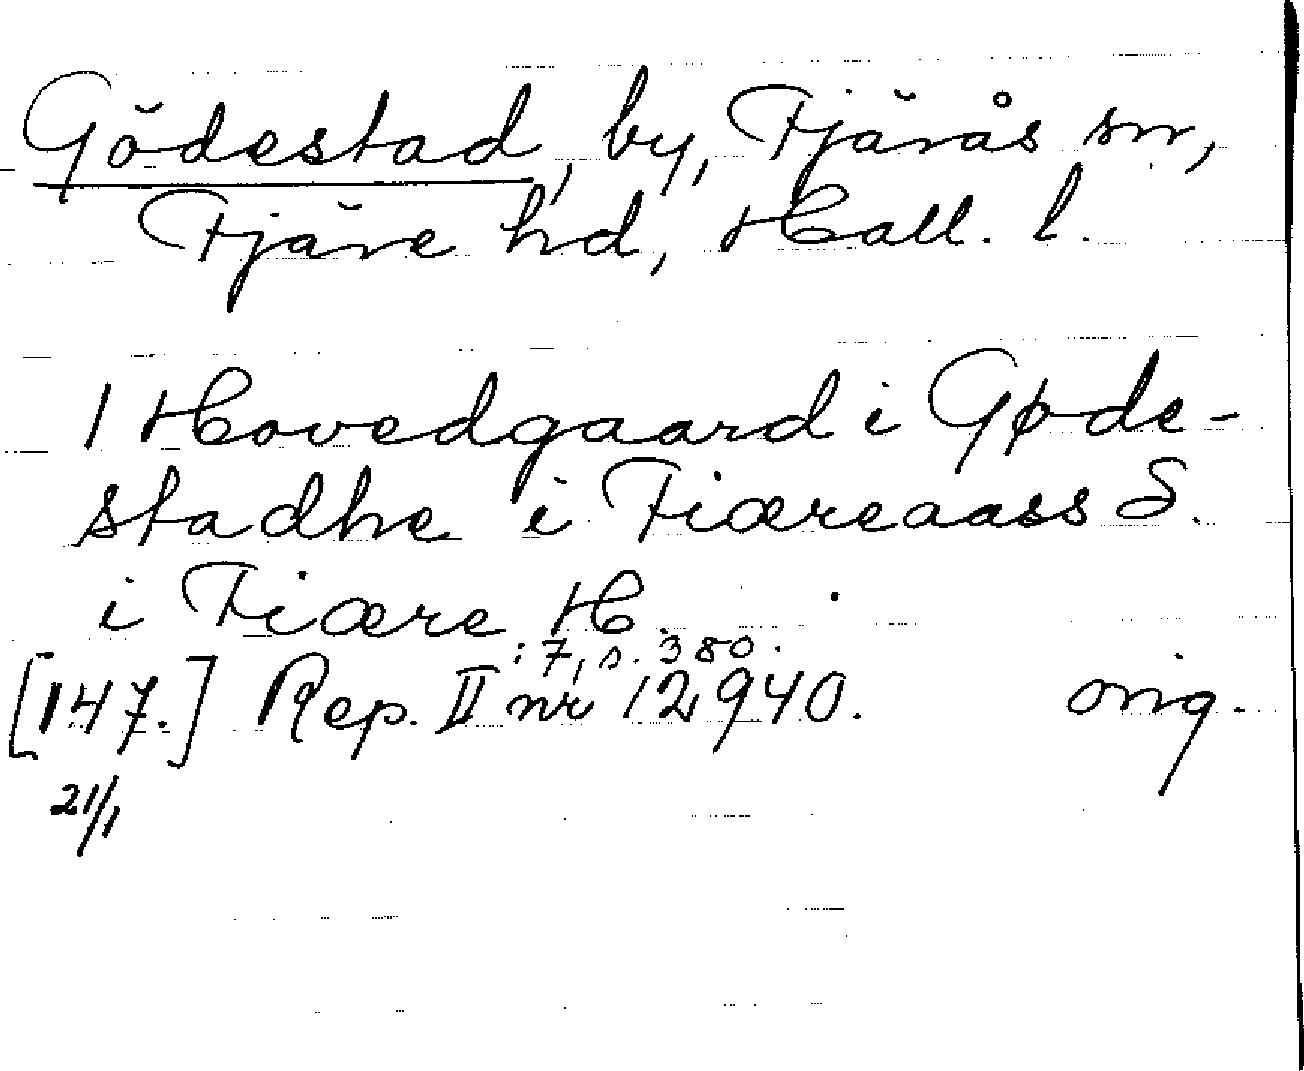 Gödestad, by, Fjärås sn,
Fjäre hd, Hall. l.
1 Hovedgaard i Gøde-
stadhe i Fiæreaass S.
i Fiære H.
:7, s. 380.
[147.] Rep. II nr 12940. orig.
21/1